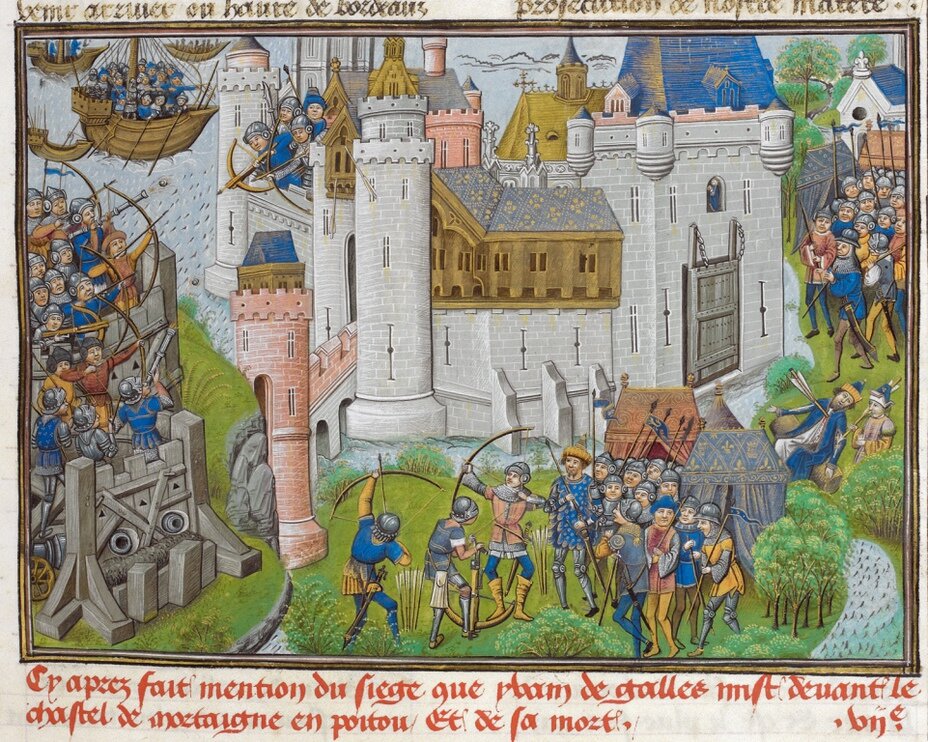 prosecution de nostre matere
Cy aprez fait mention du siege que yvain de galles mist devant le
chastel de mortaigne en poitou / Et de sa mort .
. vijᵉ